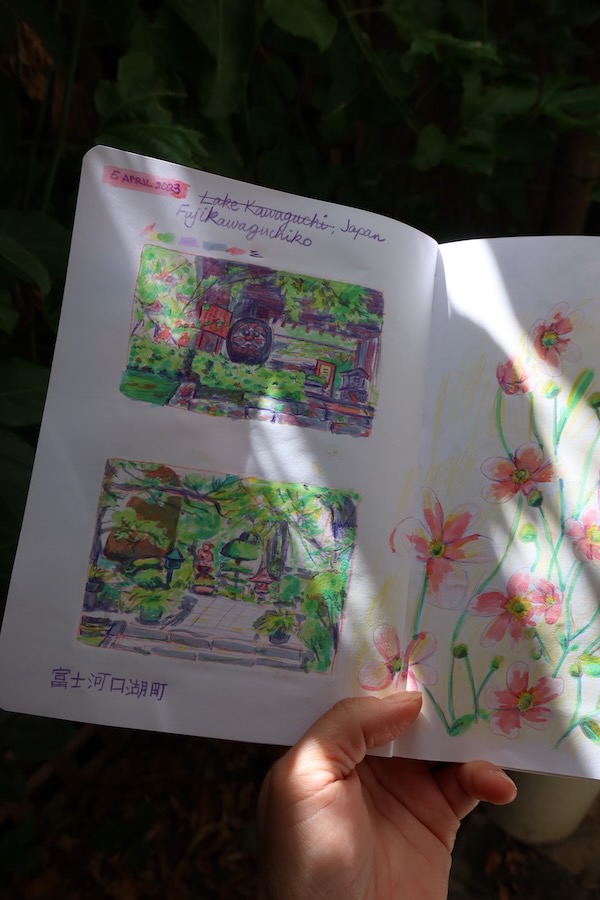 5 APRIL 2023
Lake Kawaguchi, Japan
Fujikawaguchiko
富士河口湖町